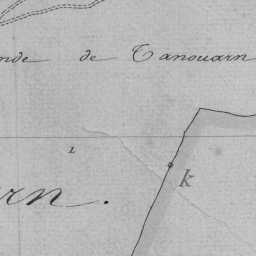 nde de Tanouarn
1
k
rn.